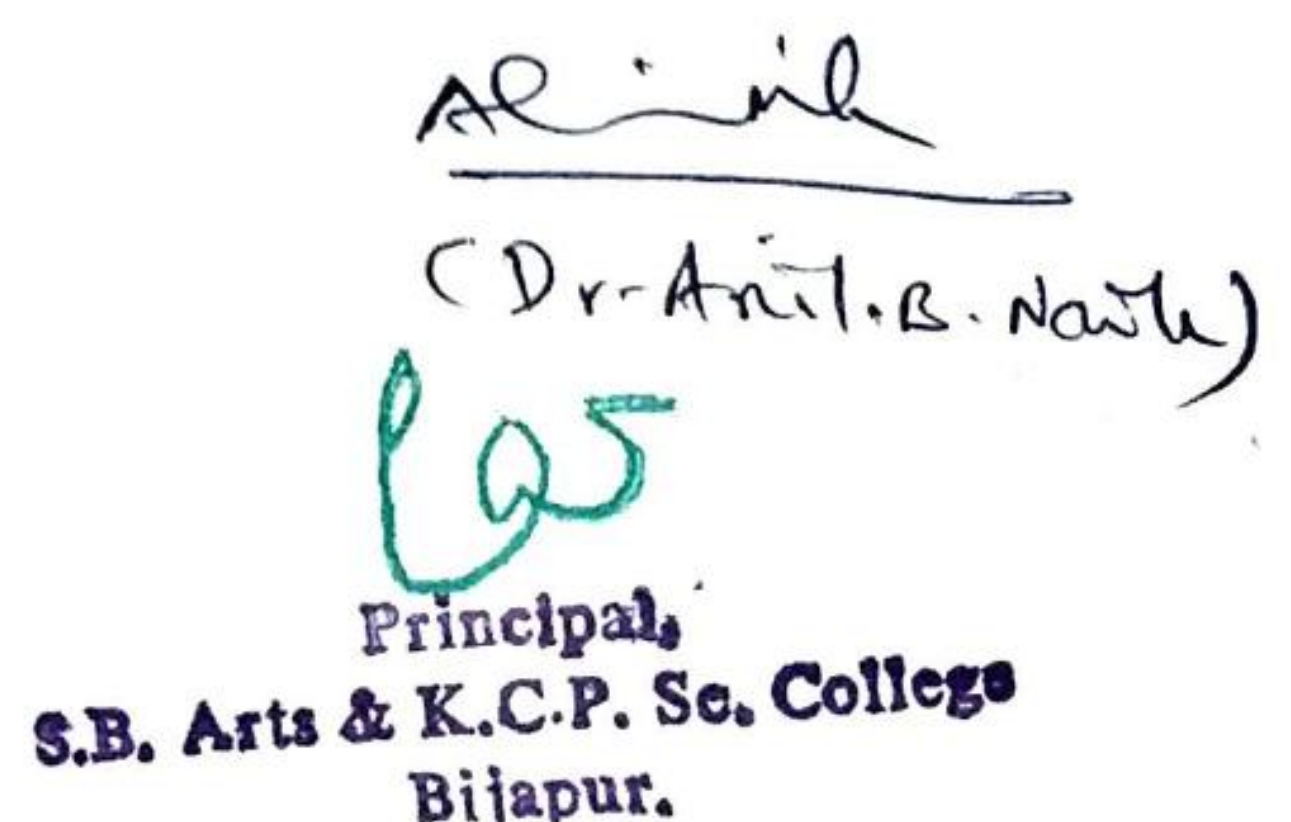 (Dr. Anil. B. Naik)
Principal,
S.B. Arts & K.C.P. Sc. College
Bijapur.